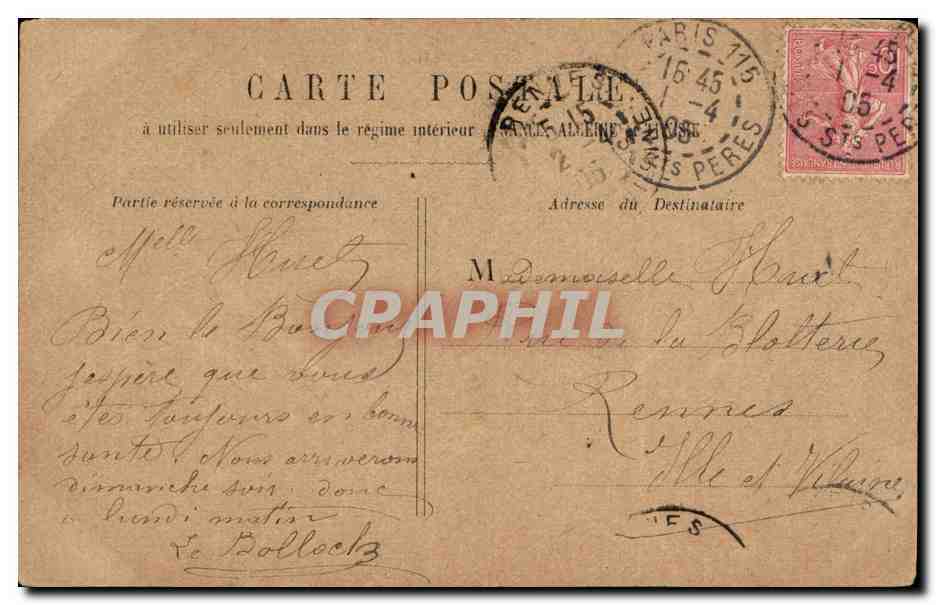 CARTE POSTALE
à utiliser seulement dans le régime intérieur FRANCE ALGÉRIE TUNISIE
PARIS 115
16 45
1 -4
05
Sts PÈRES
45
-4
05
S Sts PÈRES
RENNES
15
Partie réservée à la correspondance
Melle Huet
Bien le Bonjour
j'espère que vous
êtes toujours en bonne
santé. Nous arriverons
dimanche soir donc
a lundi matin
Le Bollock
Adresse du Destinataire
Mademoiselle Huet
Rue de la
Rennes
Ille et Vilaine
CPAPHIL
NES